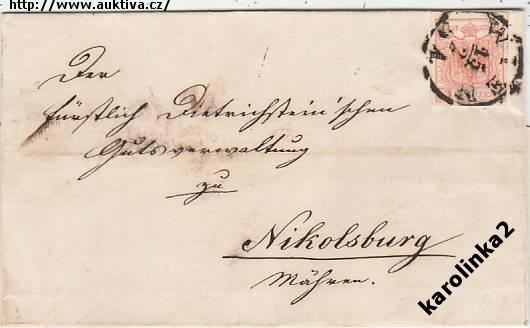 http://www.auktiva.cz/
WIEN
Der
fürstlich Dietrichstein'schen
Gutsverwaltung
zu
Nikolsburg
Mähren.
karolinka2